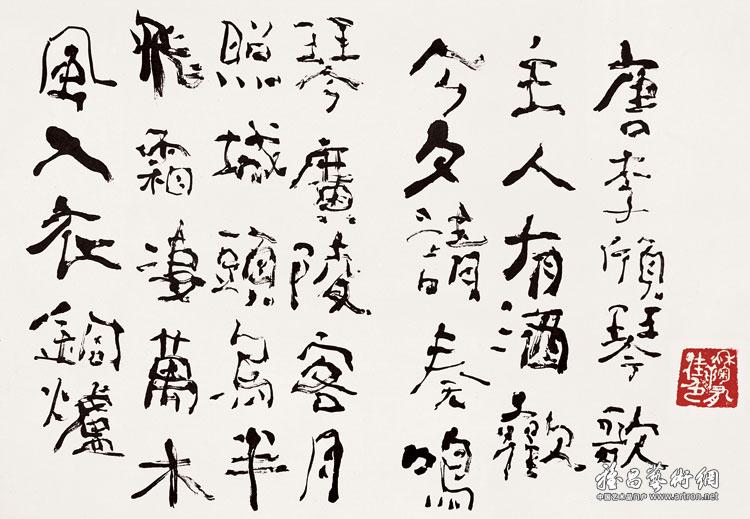 唐李頎琴歌
主人有酒歡
今夕請奏鳴
琴廣陵客月
照城頭烏半
飛霜淒萬木
風入衣銅爐
雅昌藝術網
中国艺术品门户 www.artron.net